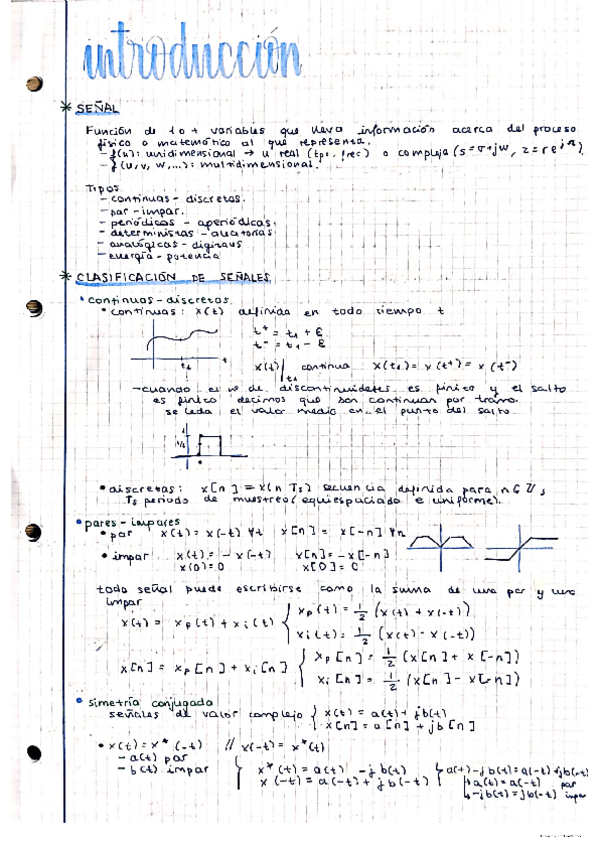 introducción
* SEÑAL
Función de 1 o + variables que lleva información acerca del proceso
físico o matemático al que representa.
- f(u): unidimensional → u real (tpo, frec) o compleja (s = σ+jω, z = re^jπ)
- f(u, v, w, ...): multidimensional.
Tipos
- continuas - discretas.
- par - impar.
- periódicas - aperiódicas.
- deterministas - aleatorias
- analógicas - digitales
- energía - potencia
* CLASIFICACIÓN DE SEÑALES
• continuas - discretas
• continuas: x(t) definida en todo tiempo t
t⁺ = t₁ + ε
t⁻ = t₁ - ε
t₁ t
x(t)|t₁ continua x(t₁) = x(t⁺) = x(t⁻)
- cuando el nº de discontinuidades es finito y el salto
es finito decimos que son continuas por tramo.
se le da el valor medio en el punto del salto.
1
1/2
• discretas: x[n] = x(n Ts) secuencia definida para n ∈ Z,
Ts periodo de muestreo (equiespaciado e uniforme).
• pares - impares
• par x(t) = x(-t) ∀t x[n] = x[-n] ∀n
• impar x(t) = - x(-t) x[n] = - x[-n]
x(0) = 0 x[0] = 0
toda señal puede escribirse como la suma de una par y una
impar
x(t) = xp(t) + xi(t) { xp(t) = 1/2 (x(t) + x(-t))
xi(t) = 1/2 (x(t) - x(-t))
x[n] = xp[n] + xi[n] { xp[n] = 1/2 (x[n] + x[-n])
xi[n] = 1/2 (x[n] - x[-n])
• simetría conjugada
señales de valor complejo { x(t) = a(t) + jb(t)
x[n] = a[n] + jb[n]
• x(t) = x*(-t) // x(-t) = x*(t)
- a(t) par
- b(t) impar
{ x*(t) = a(t) - jb(t)
x(-t) = a(-t) + jb(-t)
{ a(t) - jb(t) = a(-t) + jb(-t)
a(t) = a(-t) par
-jb(t) = jb(-t) impar